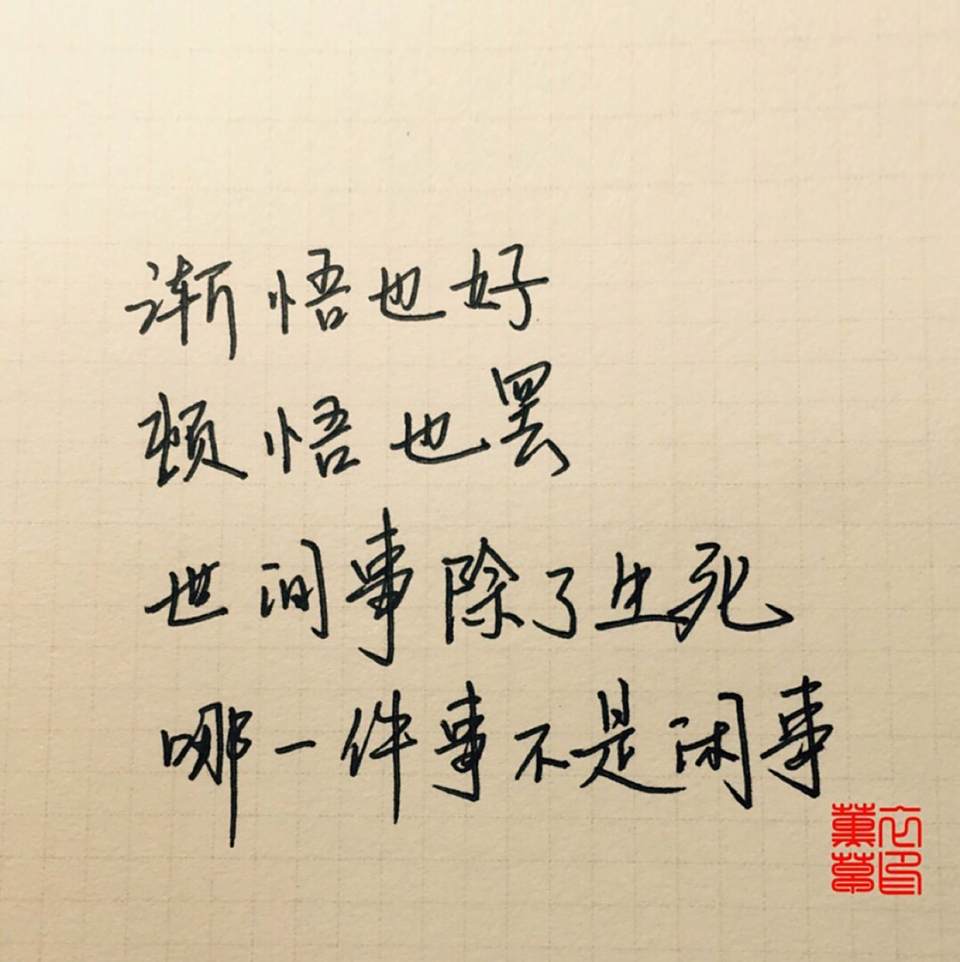 渐悟也好
顿悟也罢
世间事除了生死
哪一件事不是闲事